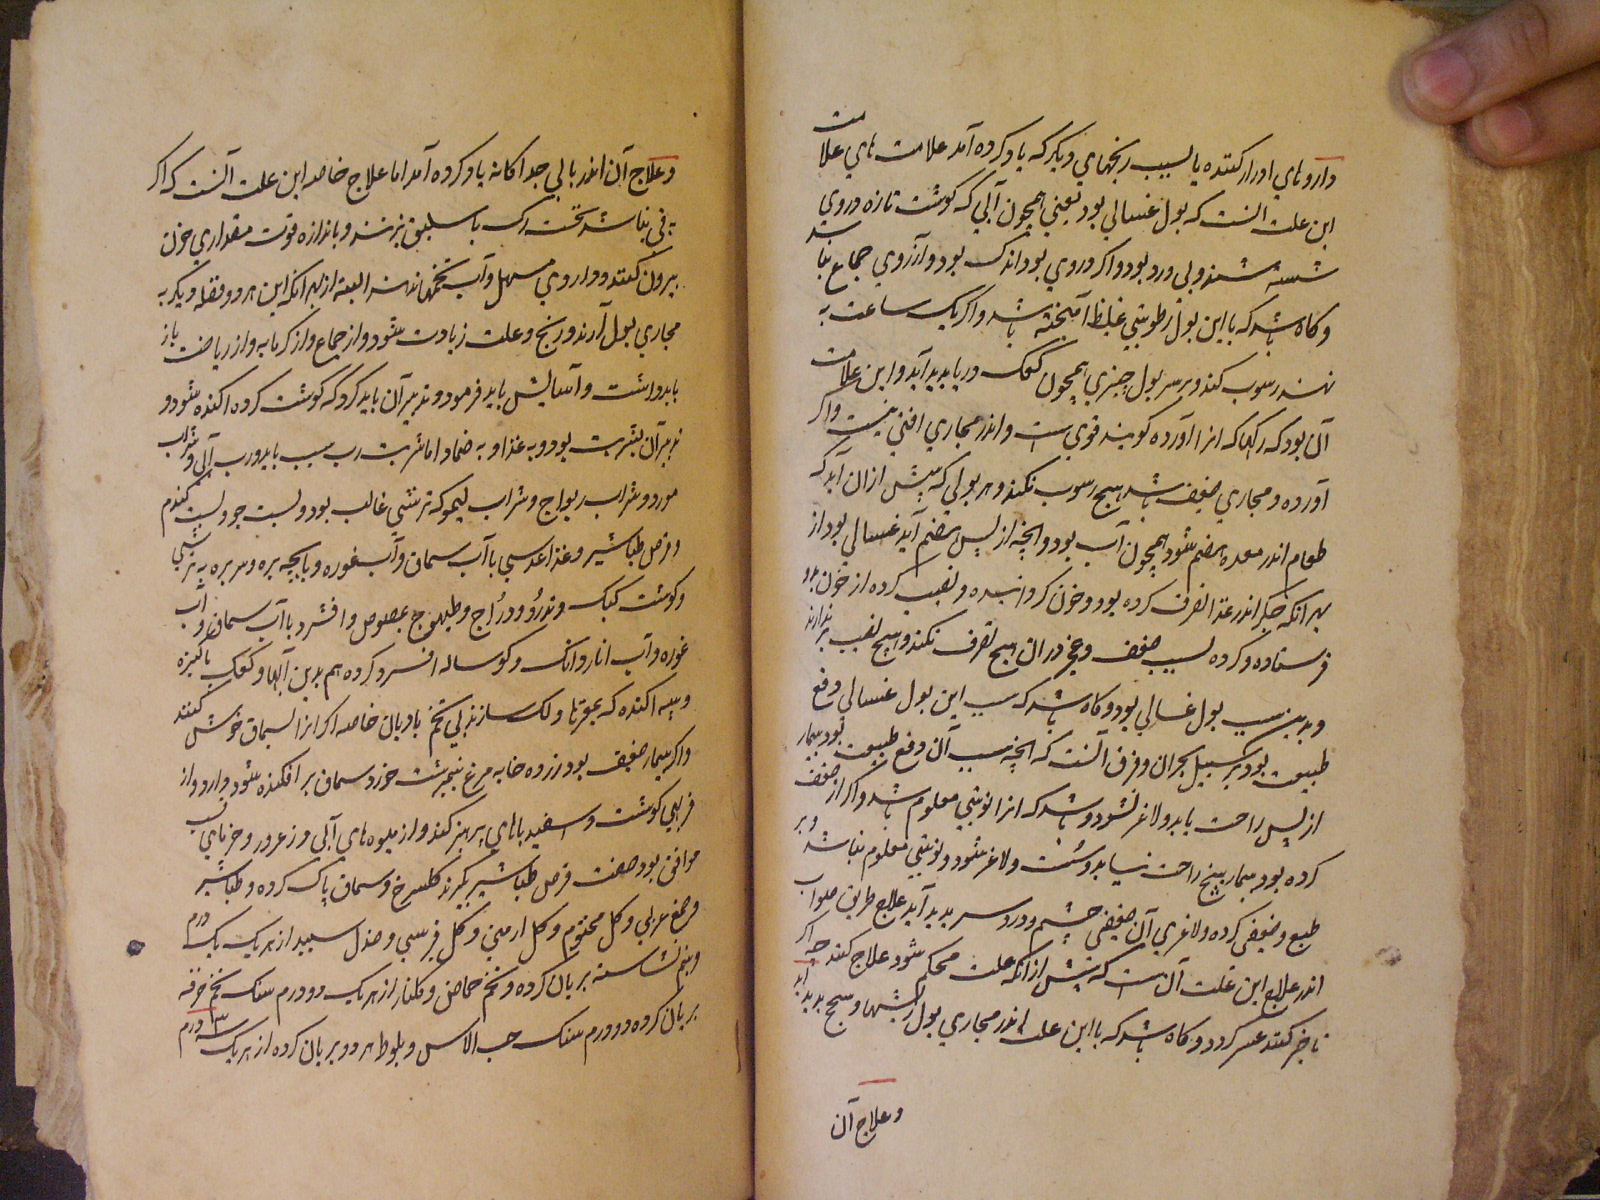 داروهای ادرار کننده یا بسبب رنجهای دیگر که یاد کرده آمد علامت های علامت
این علت آنست که بول غسالی بود یعنی همچون آبی که گوشت تازه در وی
شسته شند و بی درد بود و اگر دردی بود اندک بود و آرزوی جماع نباشد
و گاه باشد که با این بول رطوبتی غلیظ آمیخته باشد و اگر یک ساعت به
نهند رسوب کند و بر سر بول چیزی همچون کفک دریا پدید آید و این علامت
آن بود که رگها که انرا آورده گویند قوی است و اندر مجاری آفتی نیست و اگر
آورده و مجاری ضعیف باشد هیچ رسوب نکند و هر بولی که پیش از ان آید که
طعام اندر معده هضم شود همچون آب بود و انچه از پس هضم آید غسالی بود از
بهر آنکه جگر اندر غذا تصرف کرده بود و خون گردانیده و نصیب کرده از خون بود
فرستاده و کرده بسبب ضعف و عجز در ان هیچ تصرف نکند و هیچ نصیب برندارند
و بدین سبب بول غسالی بود و گاه باشد که سبب این بول غسالی دفع
طبیعت بود بر سبیل بحران و فرق آنست که انچه سبب آن دفع طبیعت بود بیمار
از پس راحت یابد و لاغر نشود و باشد که انرا نوبتی معلوم باشد و اگر از ضعف
کرده بود بیمار هیچ راحت نیابد و سست و لاغر شود و نوبتی معلوم نباشد و بر
طبع و ضعیفی کرده و لاغری آن ضعیفی چشم و درد سر پدید آید علاج طریق صواب
اندر علاج این علت آن است که پیش از آنکه علت محکم شود علاج کنند چه اگر
تاخیر کنند عسر گردد و گاه باشد که با این علت اندر مجاری بول ریشها و سحج پدید آید
و علاج آن
و علاج آن اندر بابی جداگانه یاد کرده آمد اما علاج خاصه این علت آنست که اگر
تبی نباشد نخست رگ باسلیق بزنند و باندازه قوت مقداری خون
بیرون کنند و داروی مسهل و آب تخمها ندهند البته از بهر آنکه این هر دو فضله دیگر به
مجاری بول آرند و رنج و علت زیادت شود و از جماع و از گرمابه و از ریاضت باز
باید داشت و آسایش باید فرمود و تدبیر آن باید کرد که گوشت کرده آکنده شود و
تدبیر آن بشربت بود و به غذا و به ضماد اما شربت رب سیب باید و رب آبی و شراب
مورد و شراب ریواج و شراب لیمو که ترشی غالب بود و پست جو و پست گندم
و قرص طباشیر و غذا عدسی با آب سماق و آب غوره و پاچه بره و سر بره به ترشی
و گوشت کبک و تذرو و دراج و طیهوج بمصوص و افشرد با آب سماق و آب
غوره و آب انار دانک و گوساله افسرد کرده هم بدین آبها و کعک پاکیزه
و پیه آکنده که سازند بی تخم بادیان خاصه اگر انرا بسماق خوش کنند
و اگر بیمار ضعیف بود زرده خایه مرغ نیمبرشت خورد سماق بر افکنده سود دارد و از
فربهی گوشت و اسفیدباهای پرهیز کند و از میوه های آبی و زعرور و خرمای
موافق بود صفت قرص طباشیر بگیرند گلسرخ و سماق پاک کرده و طباشیر
و صمغ عربی و گل مختوم و گل ارمنی و گل فرسی و صندل سپید از هر یک یک درم
و نیم نشاسته بریان کرده و تخم حماض و گلنار از هر یک دو درم سنگ تخم خرفه
بریان کرده دو درم سنگ حب الاس و بلوط هر دو بریان کرده از هر یک سه درم